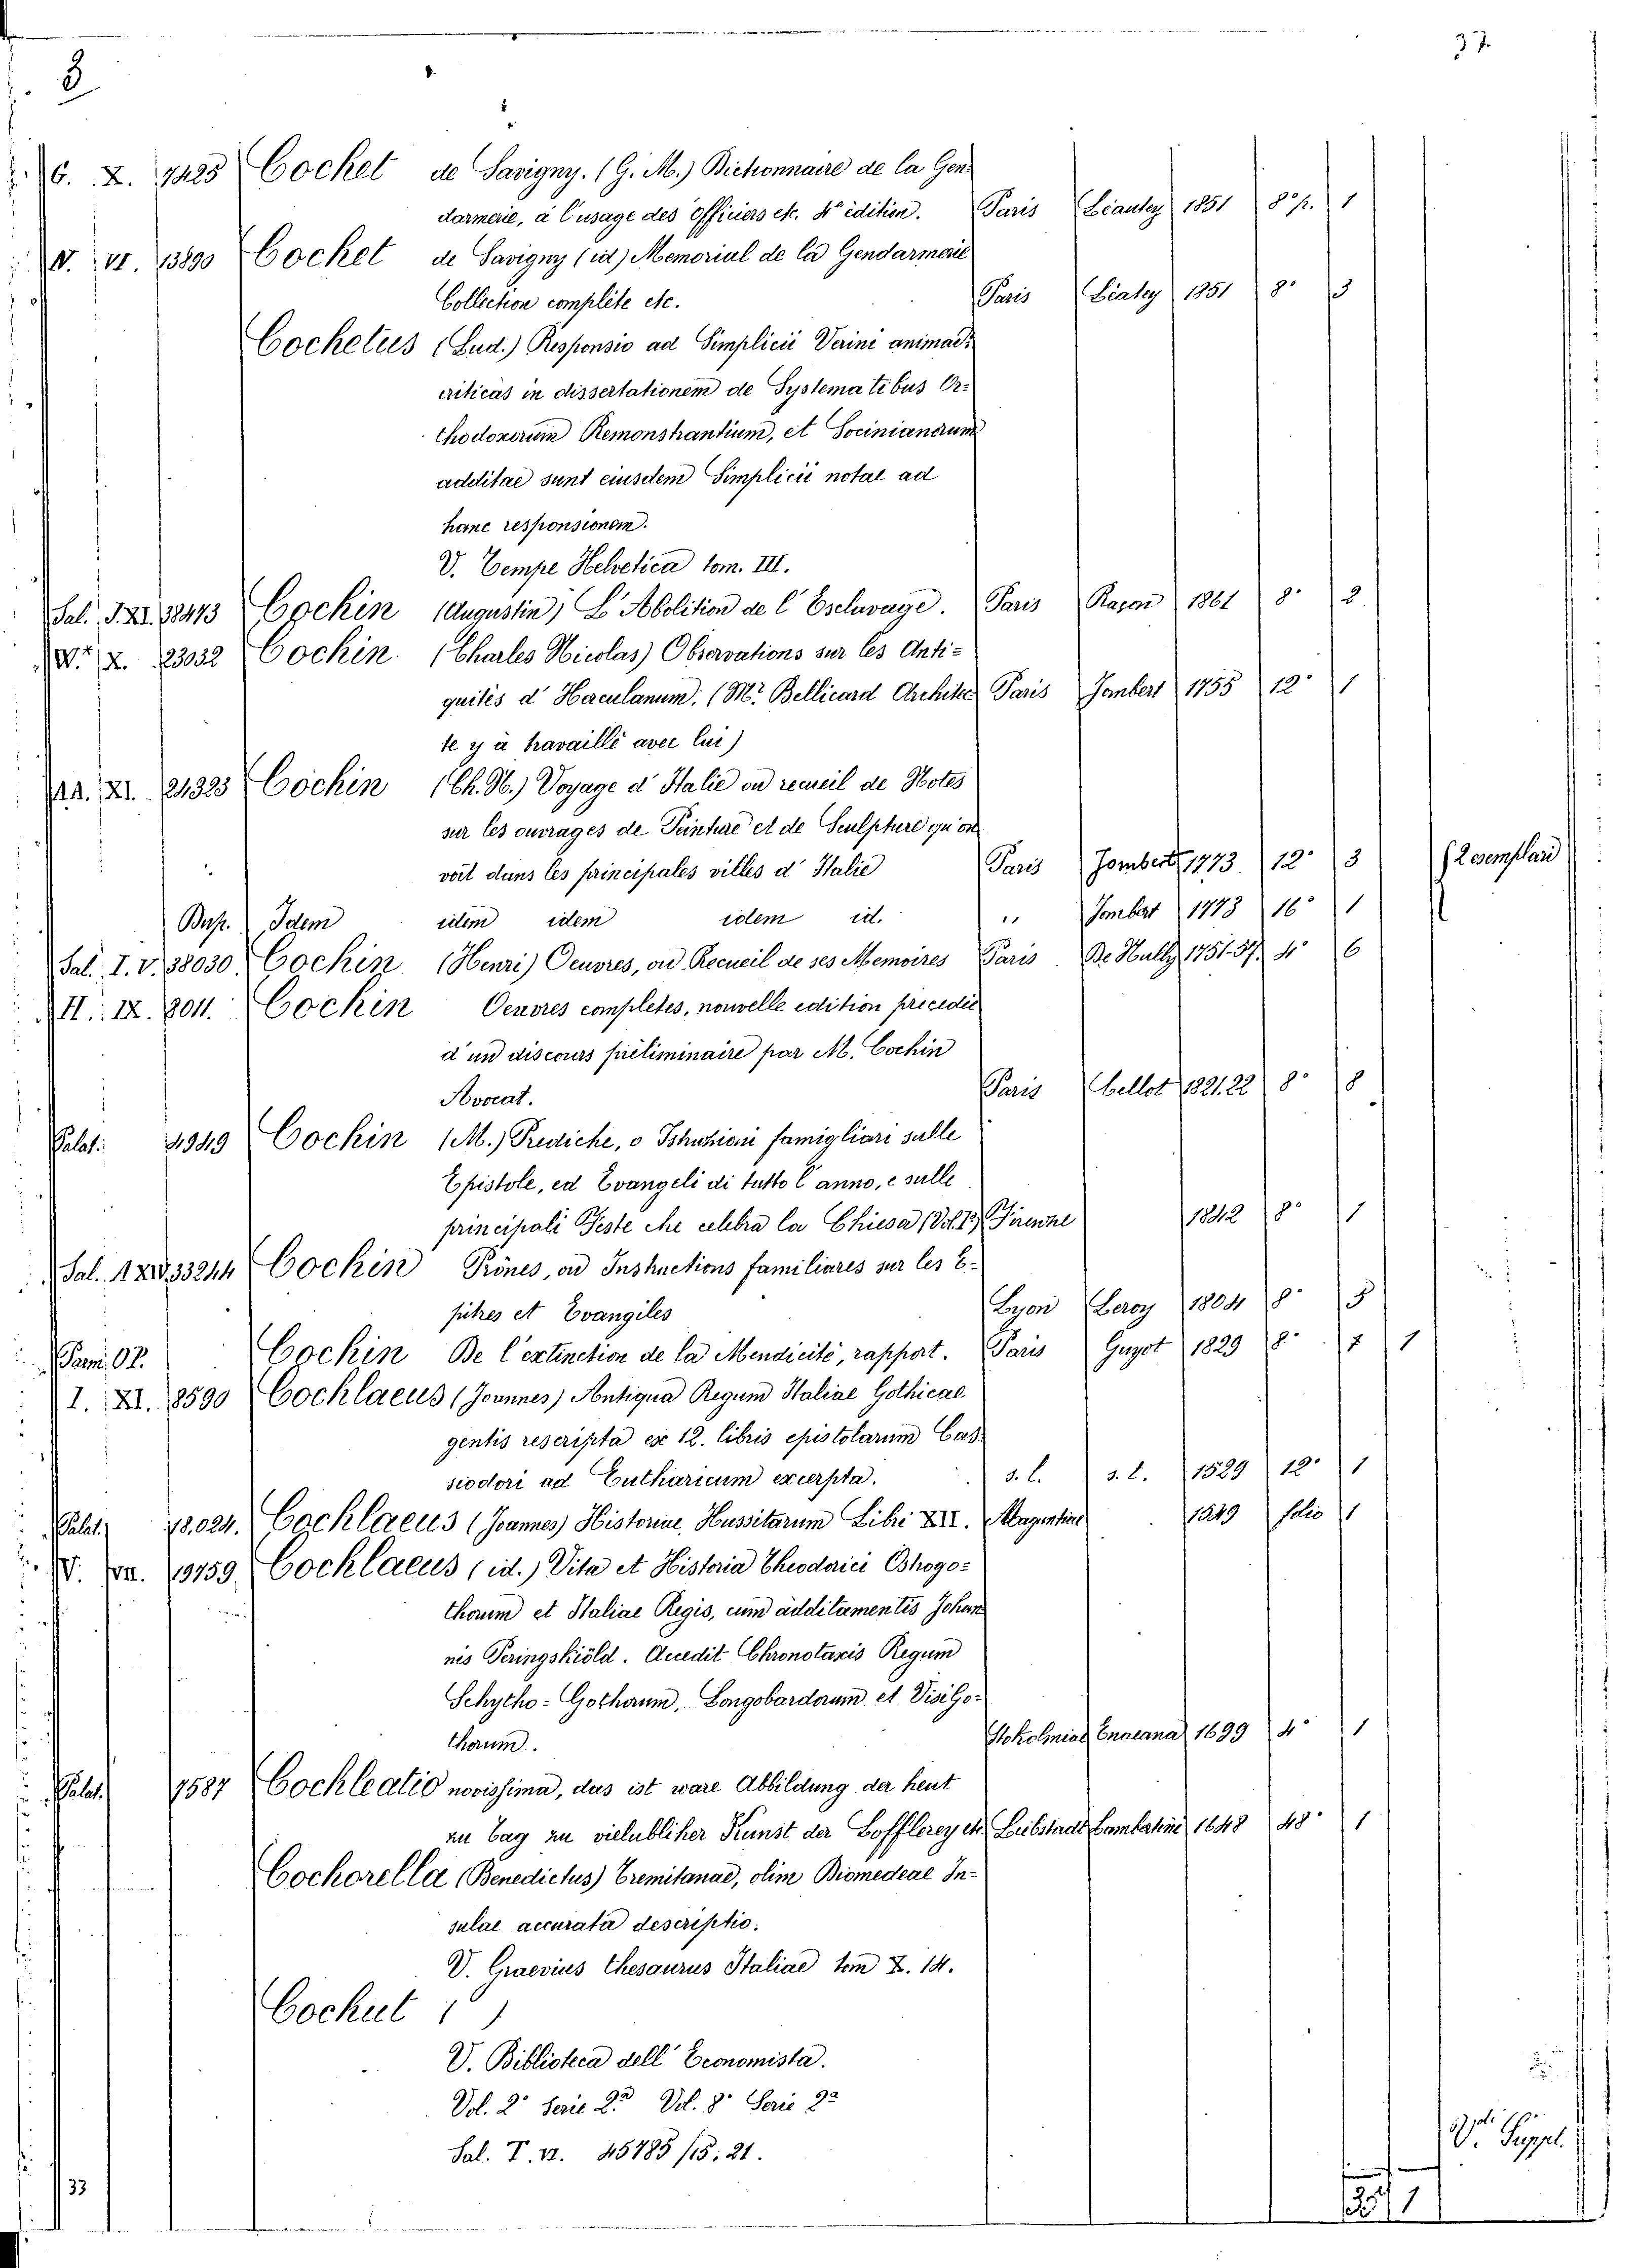 37.
8
G. X. 7425 Cochet de Savigny. (G. M.) Dictionnaire de la Gen-
darmerie, à l'usage des Officiers etc. 4e edition. Paris Léautey 1851 8° p. 1
V. VI. 13890 Cochet de Savigny (id) Memorial de la Gendarmerie
Collection complète etc. Paris Léatey 1851 8° 3
Cochetus (Lud.) Responsio ad Simplicii Verini animad:
criticas in dissertationem de Systematibus Or-
thodoxorum Remonstrantium, et Socinianorum
additae sunt eiusdem Simplicii notae ad
hanc responsionem.
V. Tempe Helvetica tom. III.
Sal. J. XI. 38473 Cochin (Augustin) L'Abolition de l'Esclavage. Paris Raçon 1861 8° 2
X. 23032 Cochin (Charles Nicolas) Observations sur les Anti-
quités d'Herculanum. (Mr. Bellicard Architec- Paris Jombert 1755 12° 1
te y à travaillé avec lui)
XI. 21323 Cochin (Ch. N.) Voyage d'Italie ou recueil de Notes
sur les ouvrages de Peinture et de Sculpture qu'on
voit dans les principales villes d'Italie Paris Jombert 1773. 12° 3 (2 esemplari
Busp. Idem idem idem idem id. " Jombert 1773 16° 1
Sal. I. V. 38030. Cochin (Henri) Oeuvres, ou Recueil de ses Memoires Paris De Nully 1751-57. 4° 6
II. IX. 2011. Cochin Oeuvres completes, nouvelle edition precedée
d'un discours préliminaire par M. Cochin
Avocat. Paris Cellot 1821.22 8° 8
Palat. 4949 Cochin (M.) Prediche, o Istruzioni famigliari sulle
Epistole, ed Evangeli di tutto l'anno, e sulle
principali Feste che celebra la Chiesa (Vol. 1°) Firenze 1842 8° 1
Sal. A XIV. 33244 Cochin Prônes, ou Instructions familiares sur les E-
pitres et Evangiles Lyon Leroy 1804 8° 5
Cochin De l'extinction de la Mendicité, rapport. Paris Guyot 1829 8° 1 1
I. XI. 8590 Cochlaeus (Joannes) Antiqua Regum Italiae Gothicae
gentis rescripta ex 12. libris epistolarum Cas-
siodori ad Eutharicum excerpta. s. l. s. t. 1529 12° 1
Palat. 18,024. Cochlaeus (Joannes) Historiae Hussitarum Libri XII. Maguntiae 1549 folio 1
V. VII. 19759. Cochlaeus (id.) Vita et Historia Theoderici Ostrogo-
thorum et Italiae Regis, cum additamentis Johan
nis Peringskiöld. Accedit Chronotaxis Regum
Schytho-Gothorum, Longobardorum et VisiGo-
thorum. Stokolmiae Enaeana 1699 4° 1
Palat. 7587 Cochleatio novissima, das ist ware Abbildung der heut
zu Tag zu vielubliher Kunst der Lofflerey etc. Leibstadt Lambatino 1648 48° 1
Cochorella (Benedictus) Tremitanae, olim Diomedeae In-
sulae accurata descriptio.
V. Graevius Thesaurus Italiae tom X. 14.
Cochut ( )
V. Biblioteca dell'Economista.
Vol. 2° Serie 2a Vol. 8° Serie 2a
Sal. T. VI. 45785 /15. 21.
Vdi Suppl.
33
1